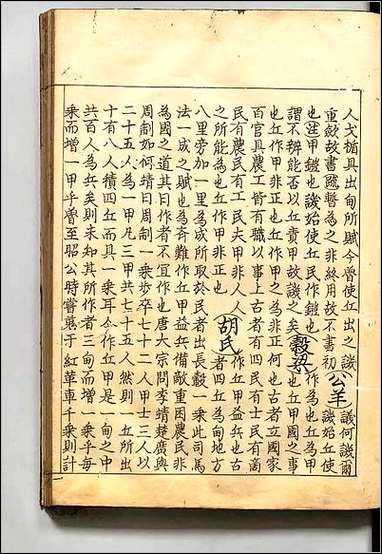 人戈楯具出甸所賦今魯使丘出之譏公羊譏何譏爾
重斂故書暫為之非終用故不書初譏始丘使
也註甲鎧也譏始使丘民作鎧也穀梁作為也丘為甲
謂不辨能否以丘責甲故譏之矣也丘甲國之事
也丘作甲非正也丘作甲之為非正何也古者立國家
百官具農工皆有職以事上古者有四民有士民有商
民有農民有工民夫甲非人人胡氏作丘甲益兵也古
之所能為也丘作甲非正也者四丘為甸地方
八里旁加一里為成所取於民者出長轂一乘此司馬
法一成之賦也為齊難作丘甲益兵備敵重困農民非
為國之道其曰作者不宜作也唐太宗問李靖楚廣與
周制如何靖曰周制一乘步卒七十二人甲士三人以
二十五人為一甲凡三甲共七十五人然則丘所出
十有八人積四丘而具一乘耳今作丘甲是一甸之中
共百人為兵矣則未知其所作者三甸而增一乘乎每
乘而增一甲乎魯至昭公時嘗蒐于紅革車千乘則計